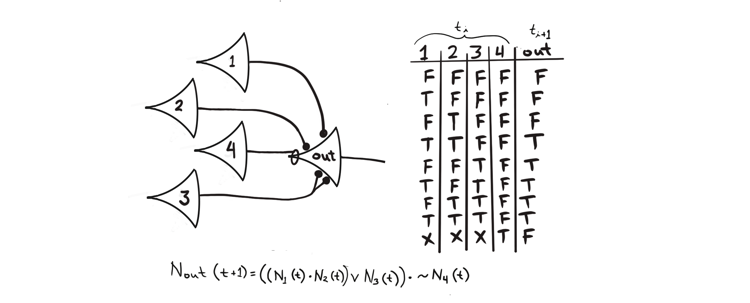 1
2
4
out
3
t_i t_{i+1}
1 2 3 4 out
F F F F F
T F F F F
F T F F F
T T F F T
F F T F T
T F T F T
F T T F T
T T T F T
X X X T F
N_out (t+1) = ((N_1(t)·N_2(t)) ∨ N_3(t)) · ~N_4(t)